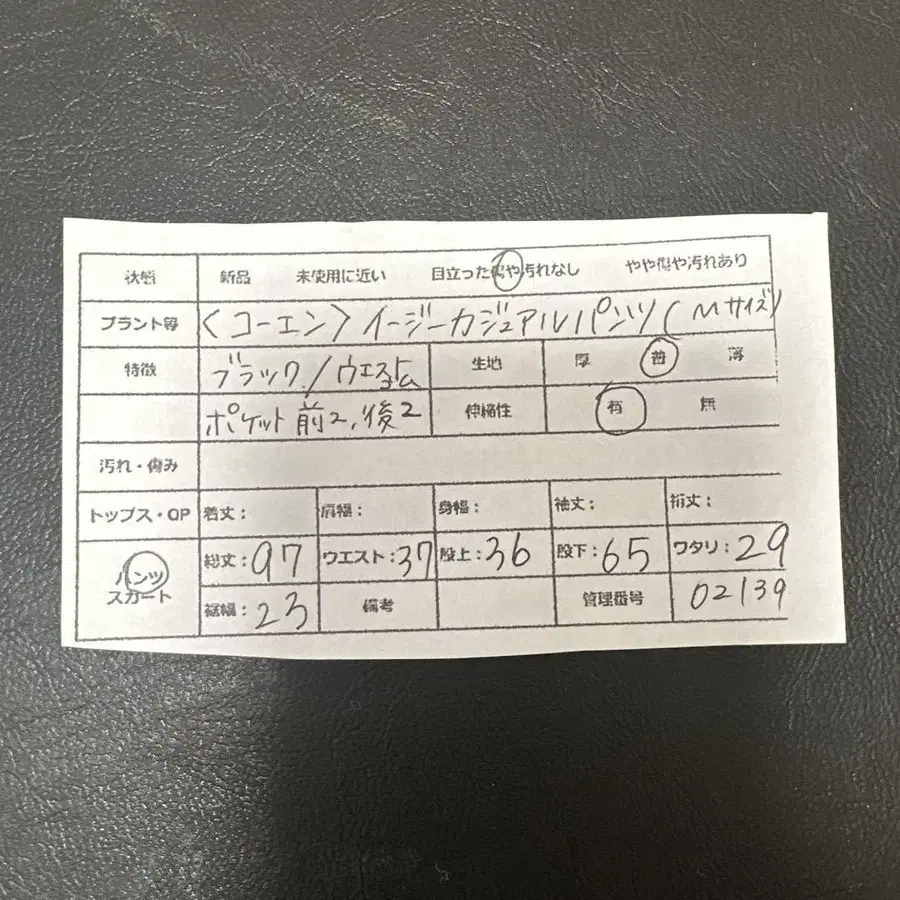 状態 新品 未使用に近い 目立った傷や汚れなし やや傷や汚れあり
ブランド等 〈コーエン〉イージーカジュアルパンツ(Mサイズ)
特徴 ブラック/ウエストゴム 生地 厚 普 薄
ポケット前2,後2 伸縮性 有 無
汚れ・傷み
トップス・OP 着丈: 肩幅: 身幅: 袖丈: 裄丈:
パンツ 総丈:97 ウエスト:37 股上:36 股下:65 ワタリ:29
スカート 裾幅:23 備考 管理番号 02139